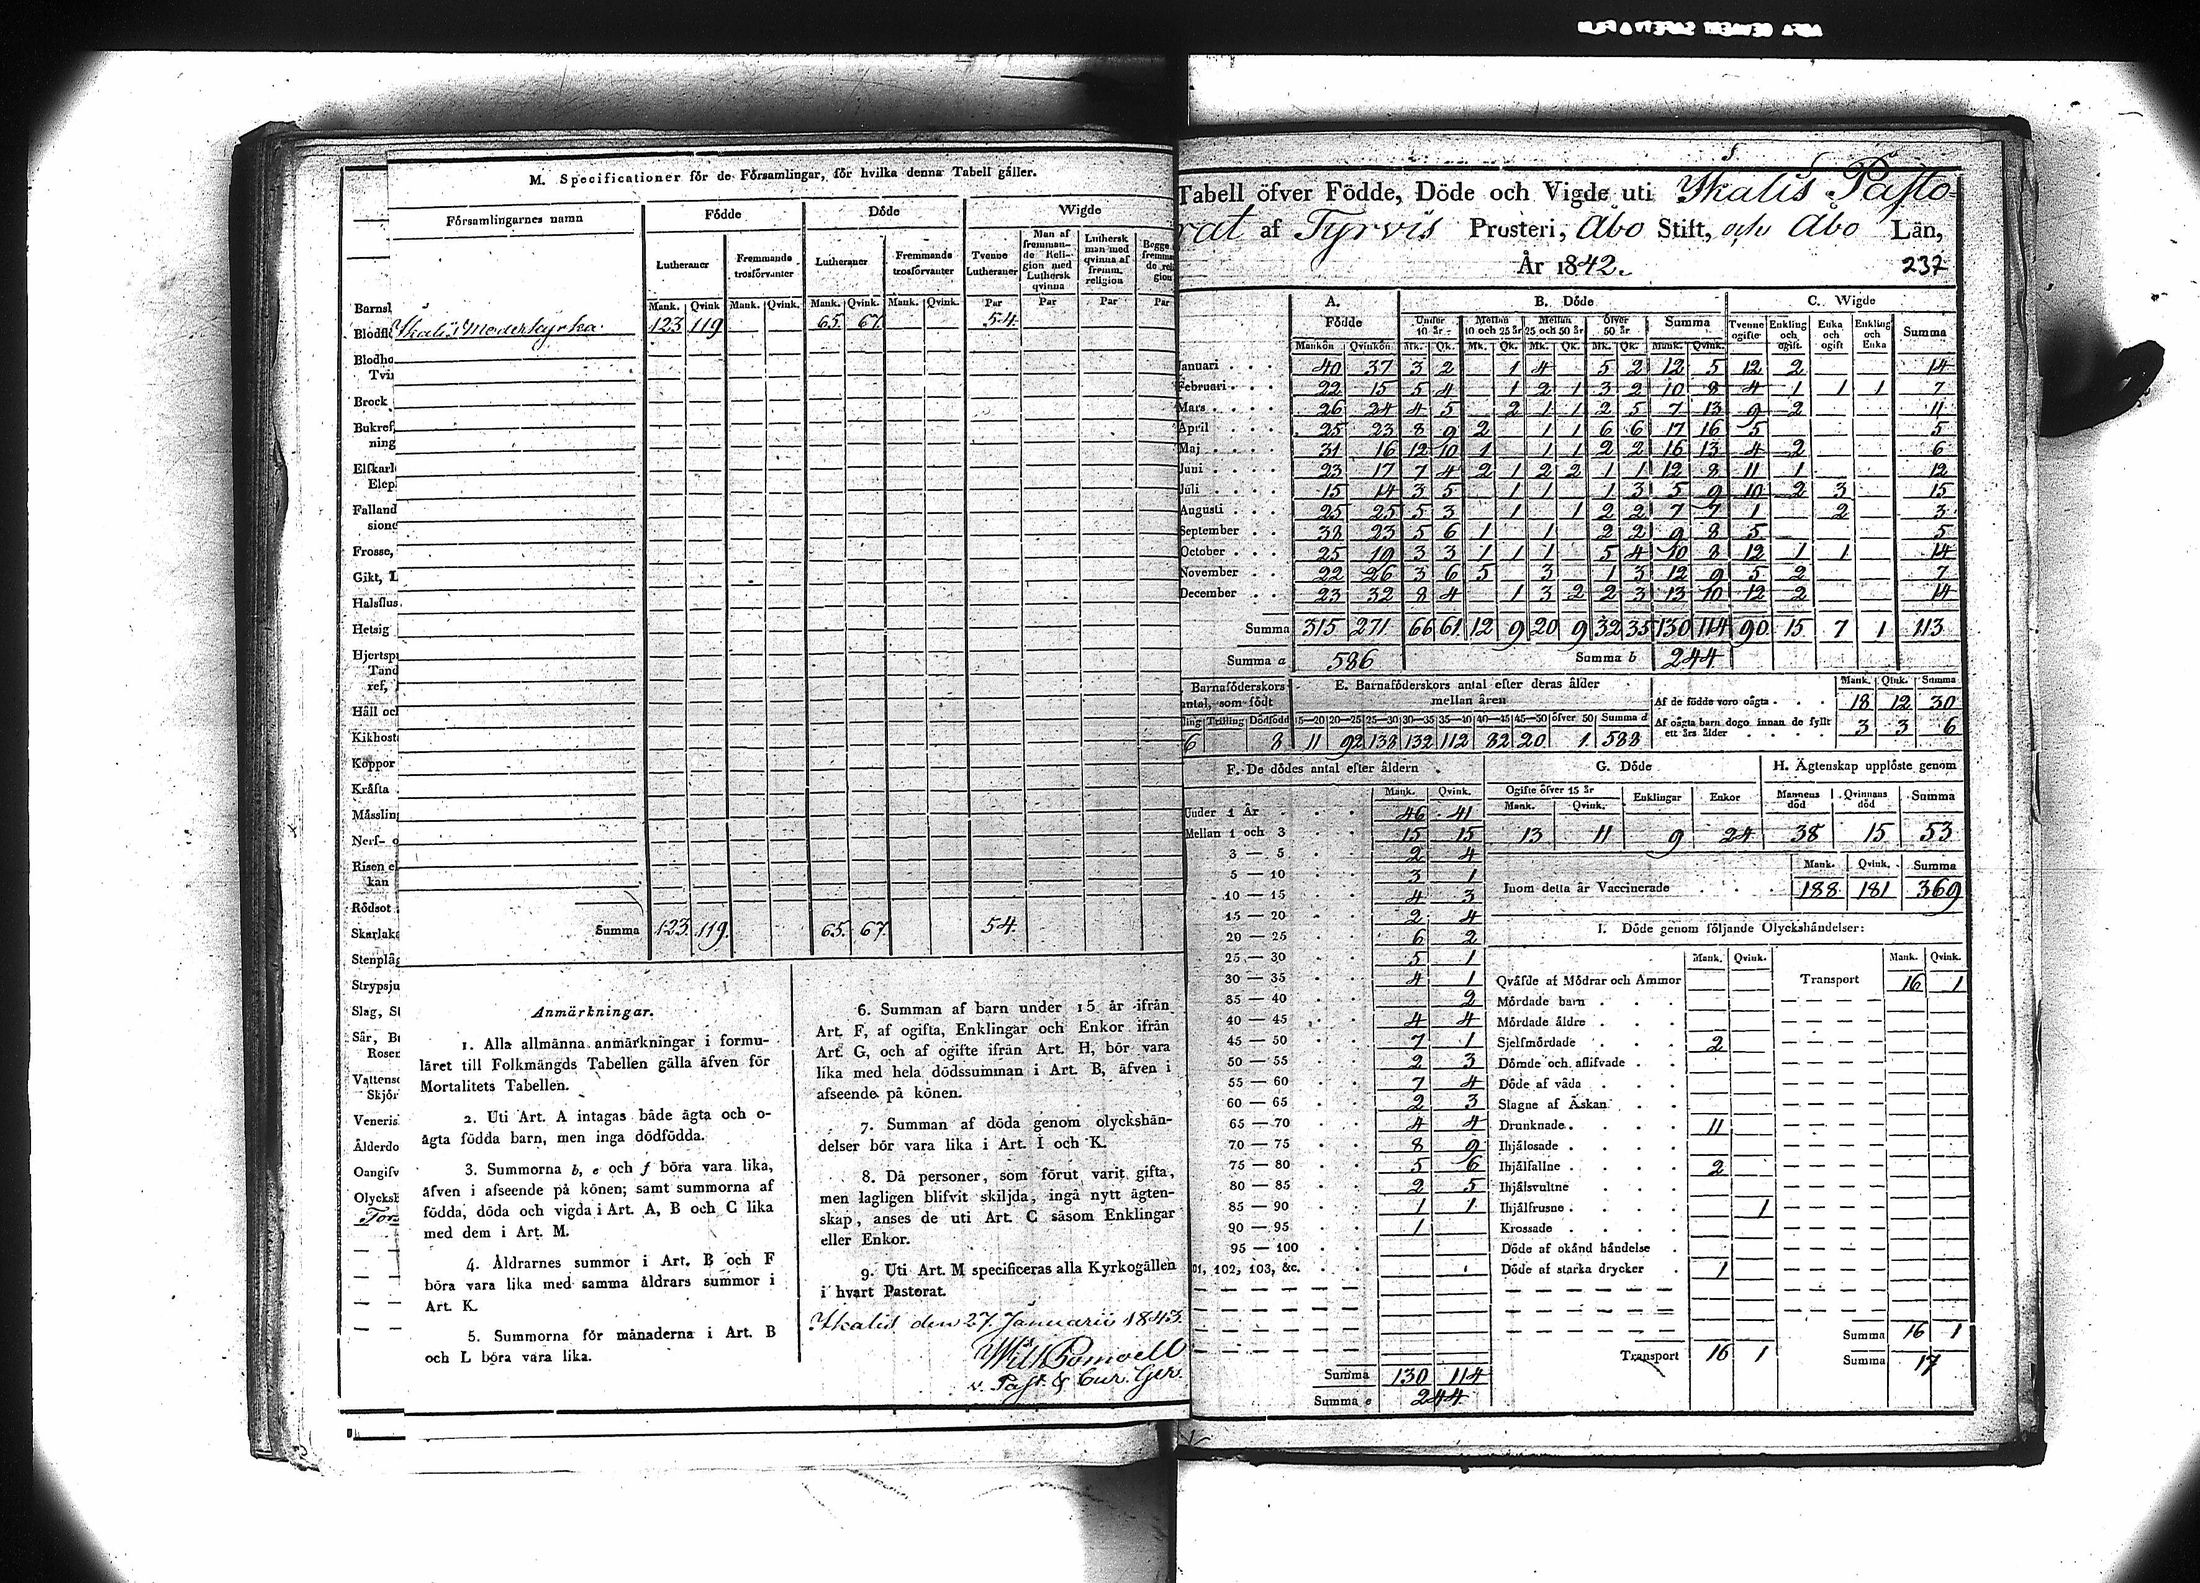 M. Specificationer för de Församlingar, för hvilka denna Tabell gäller.
Församlingarnes namn Födde Döde Wigde
Lutheraner Fremmande trosförvanter Lutheraner Fremmande trosförvanter Tvenne Lutheraner Man af fremmande Religion med Luthersk qvinna Luthersk man med qvinna af fremm. religion
Mank. Qvink Mank. Qvink. Mank. Qvink. Mank. Qvink. Par Par Par Par
Ikalis Moderkyrka 123 119 65 67 54
Summa 123 119 65 67 54
Barnsl
Blodho
Tvi
Brock
Bukref,
ning
Elfkarl
Elep
Falland
sione
Frosse,
Gikt,
Halsflus
Hetsig
Hjertsp
Tand
ref,
Håll oc
Kikhost
Koppor
Kräfta
Måsslin
Nerf-
Risen
kan
Rödsot
Skarlak
Stenplåg
Strypsju
Slag, S
Sår, B
Rosen
Vattens
Skjör
Veneris
Ålderdo
Oangifv
Olycksh
Anmärkningar.
1. Alla allmänna anmärkningar i formu-
läret till Folkmängds Tabellen gälla äfven för
Mortalitets Tabellen.
2. Uti Art. A intagas både ägta och o-
ägta födda barn, men inga dödfödda.
3. Summorna b, e och f böra vara lika,
äfven i afseende på könen; samt summorna af
födda, döda och vigda i Art. A, B och C lika
med dem i Art. M.
4. Åldrarnes summor i Art. B och F
böra vara lika med samma åldrars summor i
Art. K.
5. Summorna för månaderna i Art. B
och L böra vara lika.
6. Summan af barn under 15 år ifrån
Art. F, af ogifta, Enklingar och Enkor ifrån
Art. G, och af ogifte ifrån Art. H, bör vara
lika med hela dödssumman i Art. B, äfven i
afseende på könen.
7. Summan af döda genom olyckshän-
delser bör vara lika i Art. I och K.
8. Då personer, som förut varit gifta,
men lagligen blifvit skiljda, ingå nytt ägten-
skap, anses de uti Art. C såsom Enklingar
eller Enkor.
9. Uti Art. M specificeras alla Kyrkogällen
i hvart Pastorat.
Ikalis den 27 Januarii 1843.
v. Past. & Cur. Ger.
Tabell öfver Födde, Döde och Vigde uti Ikalis Pasto-
rat af Tyrvis Prosteri, Åbo Stift, och Åbo Län,
År 1842. 237
A. B. Döde C. Wigde
Födde Under 10 år Mellan 10 och 25 år Mellan 25 och 50 år öfver 50 år Summa Tvenne ogifte Enkling och ogift. Enka och ogift Enkling och Enka Summa
Mankön Qvinkön Mk. Qk. Mk. Qk. Mk. Qk. Mk. Qk. Mank. Qvink.
Januari 40 37 3 2 1 4 5 2 12 5 12 2 14
Februari 22 15 5 4 1 2 1 3 2 10 8 4 1 1 1 7
Mars 26 24 4 5 2 1 1 2 5 7 13 9 2 11
April 25 23 8 9 2 1 1 6 6 17 16 5 5
Maj 31 16 12 10 1 1 1 2 2 16 13 4 2 6
Juni 23 17 7 4 2 1 2 2 1 1 12 8 11 1 12
Juli 15 14 3 5 1 1 1 3 5 9 10 2 3 15
Augusti 25 25 5 3 1 1 2 2 7 7 1 2 3
September 38 23 5 6 1 1 2 2 9 8 5 5
October 25 19 3 3 1 1 1 5 4 10 8 12 1 1 14
November 22 26 3 6 5 3 1 3 12 9 5 2 7
December 23 32 8 4 1 3 2 2 3 13 10 12 2 14
Summa 315 271 66 61 12 9 20 9 32 35 130 114 90 15 7 1 113
Summa a 586 Summa b 244
Barnaföderskors antal, som födt
Trilling Dödfödd
6 8
E. Barnaföderskors antal efter deras ålder
mellan åren
15—20 20—25 25—30 30—35 35—40 40—45 45—50 öfver 50 Summa d
11 92 138 132 112 82 20 1 588
Mank. Qink. Summa
Af de födde voro oägta 18 12 30
Af oägta barn dogo innan de fyllt
ett års ålder 3 3 6
F. De dödes antal efter åldern
Mank. Qvink.
Under 1 År 46 41
Mellan 1 och 3 15 15
3 — 5 2 4
5 — 10 3 1
10 — 15 4 3
15 — 20 2 4
20 — 25 6 2
25 — 30 5 1
30 — 35 4 1
35 — 40 2
40 — 45 4 4
45 — 50 7 1
50 — 55 2 3
55 — 60 7 4
60 — 65 2 3
65 — 70 4 4
70 — 75 8 9
75 — 80 5 6
80 — 85 2 5
85 — 90 1 1
90 — 95 1
95 — 100
101, 102, 103, &c.
Summa 130 114
Summa e 244
G. Döde
Ogifte öfver 15 år Enklingar Enkor
Mank. Qvink.
13 11 9 24
H. Ägtenskap upplöste genom
Mannens död Qvinnans död Summa
38 15 53
Mank. Qvink. Summa
Inom detta år Vaccinerade 188 181 369
I. Döde genom följande Olyckshändelser:
Mank. Qvink. Mank. Qvink.
Qväfde af Mödrar och Ammor Transport 16 1
Mördade barn
Mördade äldre
Sjelfmördade 2
Dömde och aflifvade
Döde af våda
Slagne af Åskan
Drunknade 11
Ihjälosade
Ihjälfallne 2
Ihjälsvultne
Ihjälfrusne 1
Krossade
Döde af okänd händelse
Döde af starka drycker 1
Summa 16 1
Transport 16 1 Summa 17